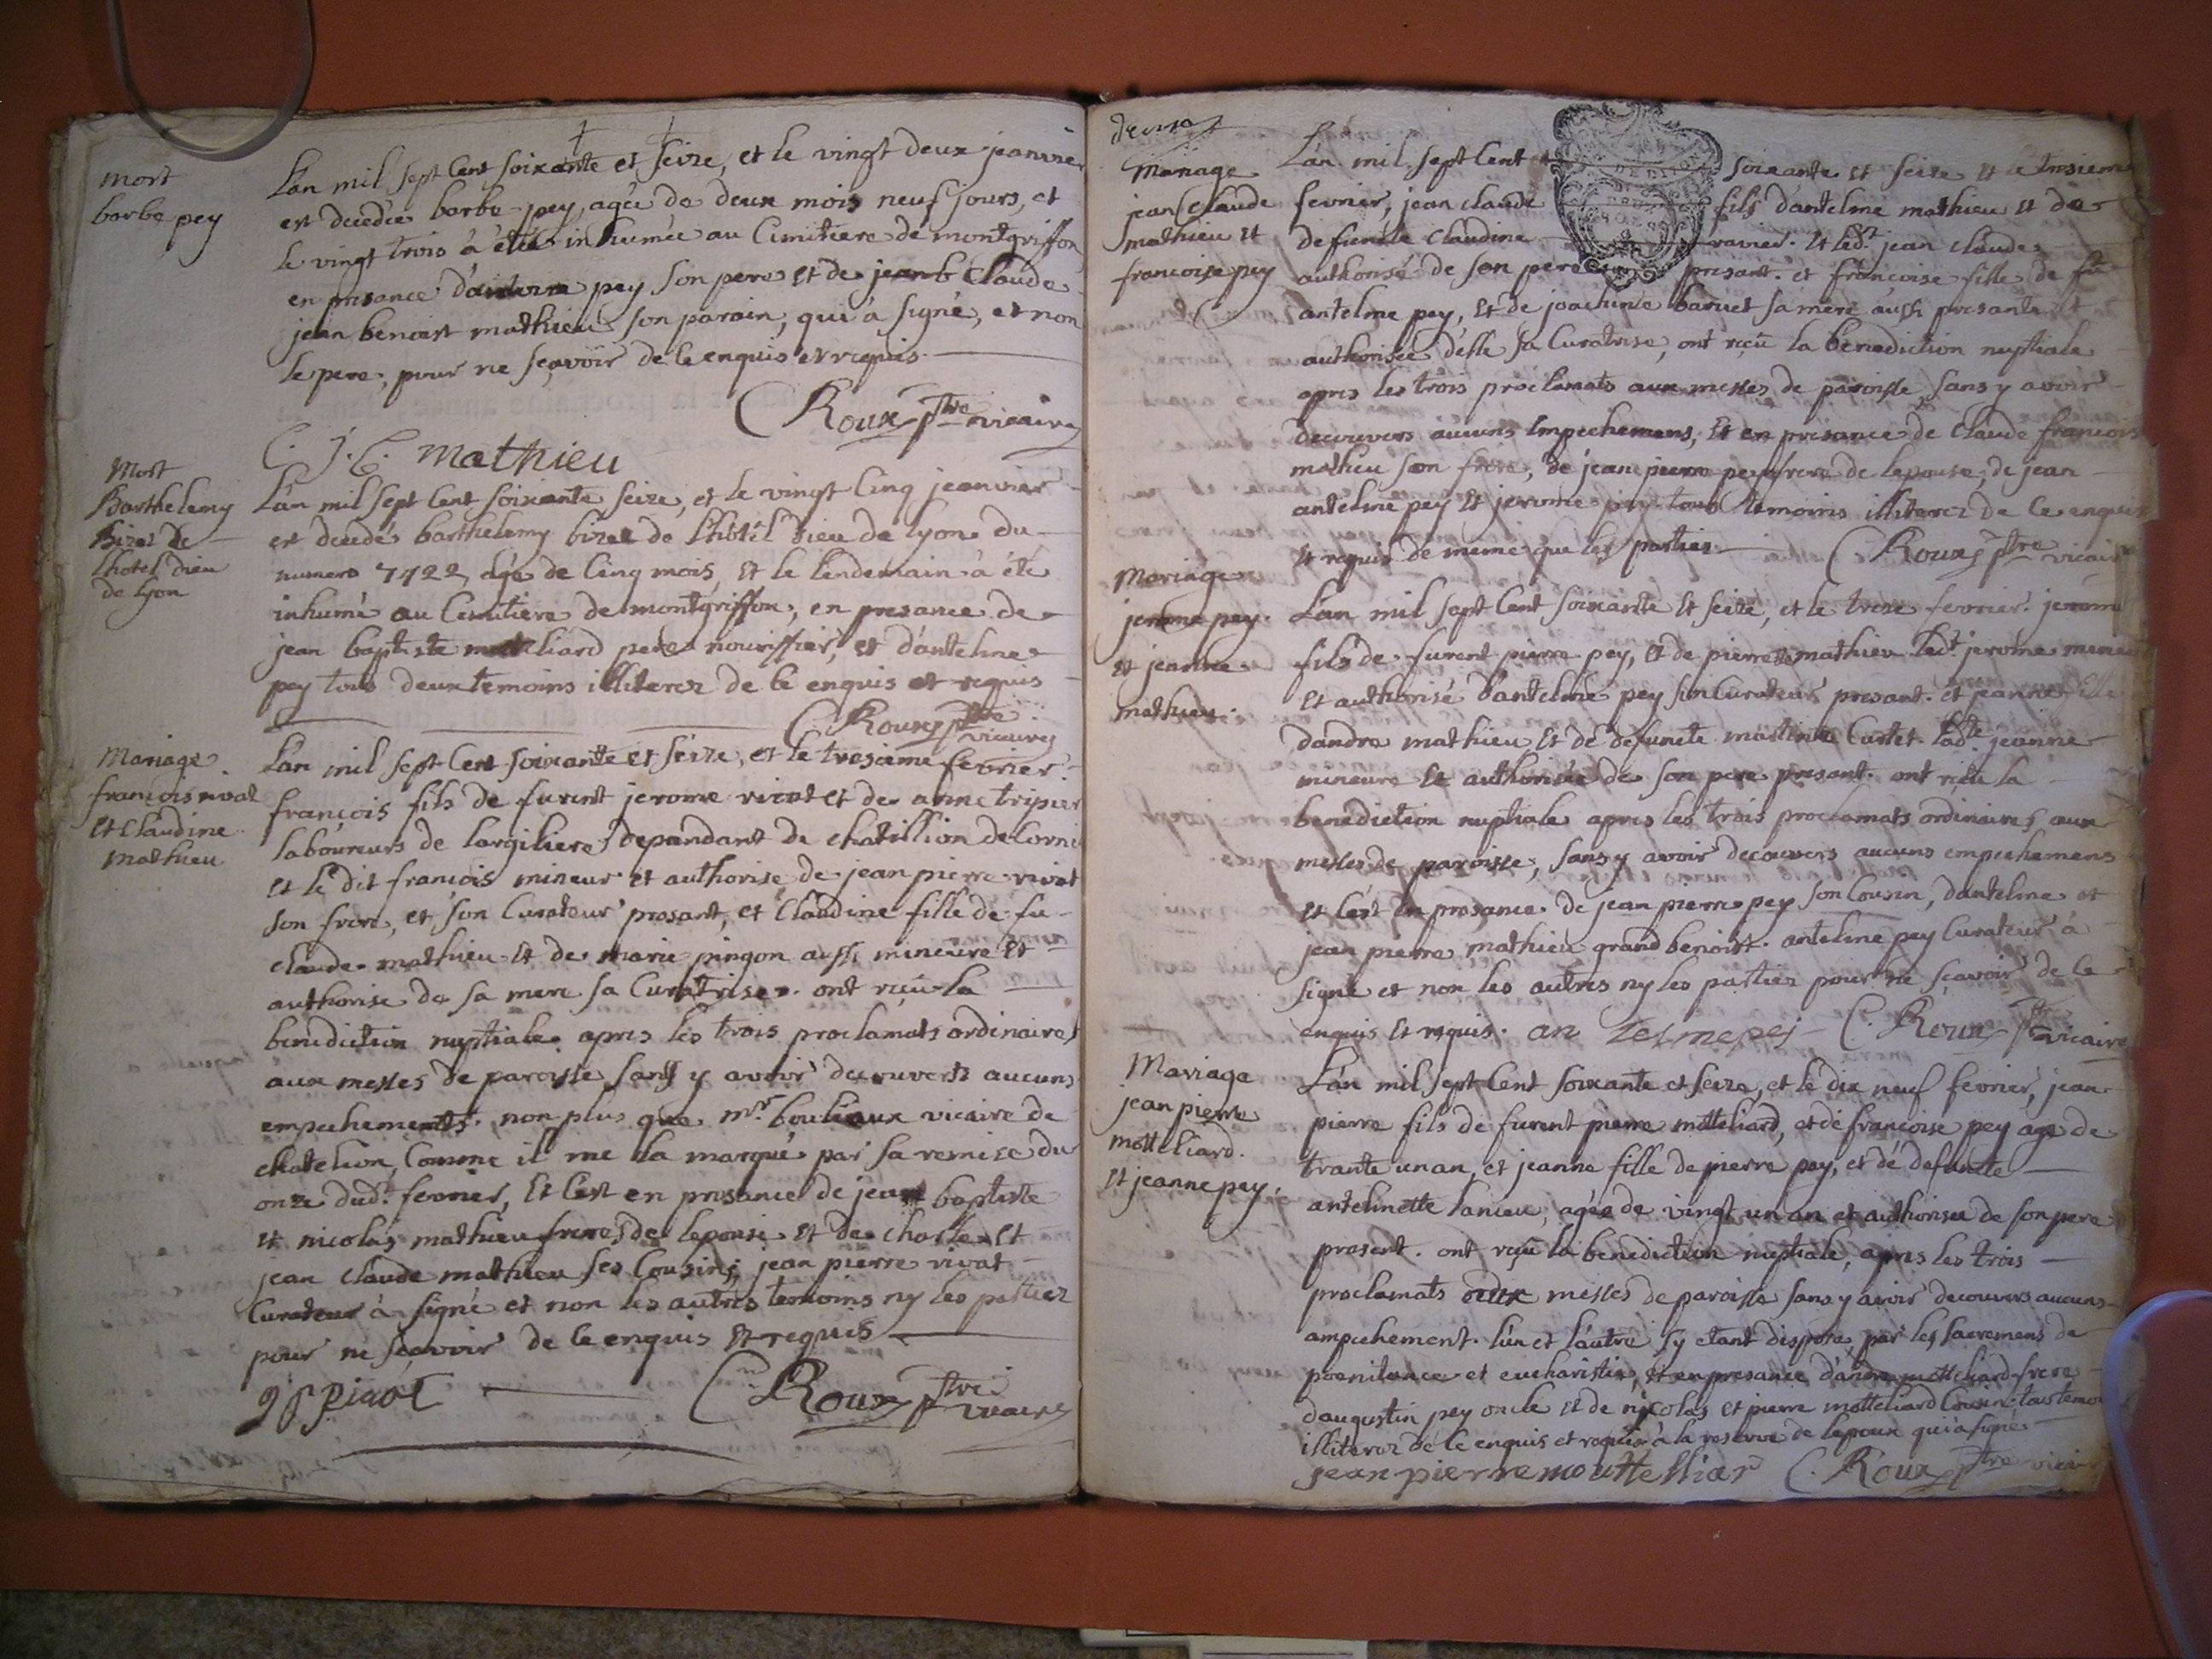 mort
barbe pey
L'an mil sept Cent soixante et seize, et le vingt deux jeanvier
est decedée barbe pey, agée de deux mois neuf jours, et
le vingt trois à été inhumée au Cimitiere de montgriffon
en presance pey son pere et de Claude
jean benoist mathieu son parain, qui à signé, et non
le pere, pour ne sçavoir de ce enquis et requis.
C. Roux ptre vicaire
C. J. B. mathieu
Mort
Barthelemy
Bizet de
lhotel dieu
de lyon
L'an mil sept Cent soixante seize, et le vingt Cinq jeanvier
est decedé barthelemy bizet de lhôtel dieu de lyon du
numero 7422, agé de Cinq mois, Et le lendemain à été
inhumé au Cimitiere de montgriffon, en presance de
jean baptiste motteliard pere nouriffier, et d'antelme
pey tous deux temoins illiterez de ce enquis et requis
C. Roux ptre vicaire
Mariage
françois vivat
Et Claudine
mathieu
L'an mil sept Cent soixante et seize, et le trosieme fevrier.
françois fils de furent jerome vivat et de anne tripier
laboureurs de largiliere dépandant de chatillion de Corni
Et le dit francois mineur et authorise de jean pierre vivat
son frere, et son Curateur presant, et Claudine fille de fu
claude mathieu Et de marie pingon aussi mineure Et
authorise de sa mere sa Curatrise. ont reçu la
benediction nuptiale apres les trois proclamats ordinaires
aux messes de paroisse sans y avoir decouverts aucuns
empechements. non plus que mr. bouliaux vicaire de
chatelion, Comme il me la marqué par sa remise du
onze dud. fevrier, Et C'est en presance de jean baptiste
et nicolas mathieu freres de lepouse Et de charle Et
jean Claude mathieu ses Cousins, jean pierre vivat
Curateur à signé et non les autres temoins ny les parties
pour ne sçavoir de ce enquis Et requis
C. Roux ptre vicaire
Mariage
jean Claude
mathieu Et
francoise pey
L'an mil sept Cent soixante et seize et le trosieme
fevrier, jean claude fils d'antelme mathieu Et de
defuncte Claudine ravier. Et ledt jean claude
authorisé de son pere presant. et françoise fille de fu
antelme pey, Et de joachime baruet sa mere aussi presante et
authorisée d'elle sa Curatrise, ont reçu la benediction nuptiale
apres les trois proclamats aux messes de paroisse sans y avoir
decouvers aucuns Empechemens, Et en presance de Claude francois
mathieu son frere, de jean pierre pey frere de lepouse, de jean
antelme pey Et jerome pey tous temoins illiterez de ce enquis
Et requis de meme que les parties. C. Roux ptre vicaire
Mariage
jerome pey.
et jeanne
mathieu.
L'an mil sept Cent soixante Et seize, et le treze fevrier. jerome
fils de furent pierre pey, Et de pierrette mathieu ledt jerome mineur
Et authorisé d'antelme pey son Curateur presant. et jeanne fille
dandre mathieu Et de defuncte Custet. ladte jeanne
mineure Et authorisée de son pere presant. ont reçu la
benediction nuptiale apres les trois proclamats ordinaires aux
messes de paroisse, sans y avoir decouvers aucuns empechemens
et C'est en presance de jean pierre pey son Cousin, dantelme et
jean pierre mathieu grand benoist. antelme pey Curateur à
signé et non les autres ny les parties pour ne sçavoir de ce
enquis Et requis. an telme pei C. Roux ptre vicaire
Mariage
jean pierre
motteliard.
Et jeanne pey.
L'an mil sept Cent soixante et seize, et le dix neuf fevrier, jean
pierre fils de furent pierre motteliard, et de francoise pey agé de
trante un an, et jeanne fille de pierre pey, et de defuncte
antelmette agée de vingt un an et authorisée de son pere
presant. ont reçu la benediction nuptiale, apres les trois
proclamats aux messes de paroisse sans y avoir decouvers aucuns
ampechement. l'un et l'autre s'y etant disposé par les sacremens de
poenitence et eucharistie, et en presance d'andre motteliard frere
d'augustin pey oncle et de nicolas et pierre motteliard Cousin tous temoins
illiterez de ce enquis et requis à la reserve de lepoux qui à signé
jean pierre mouttelliar C. Roux ptre vicaire